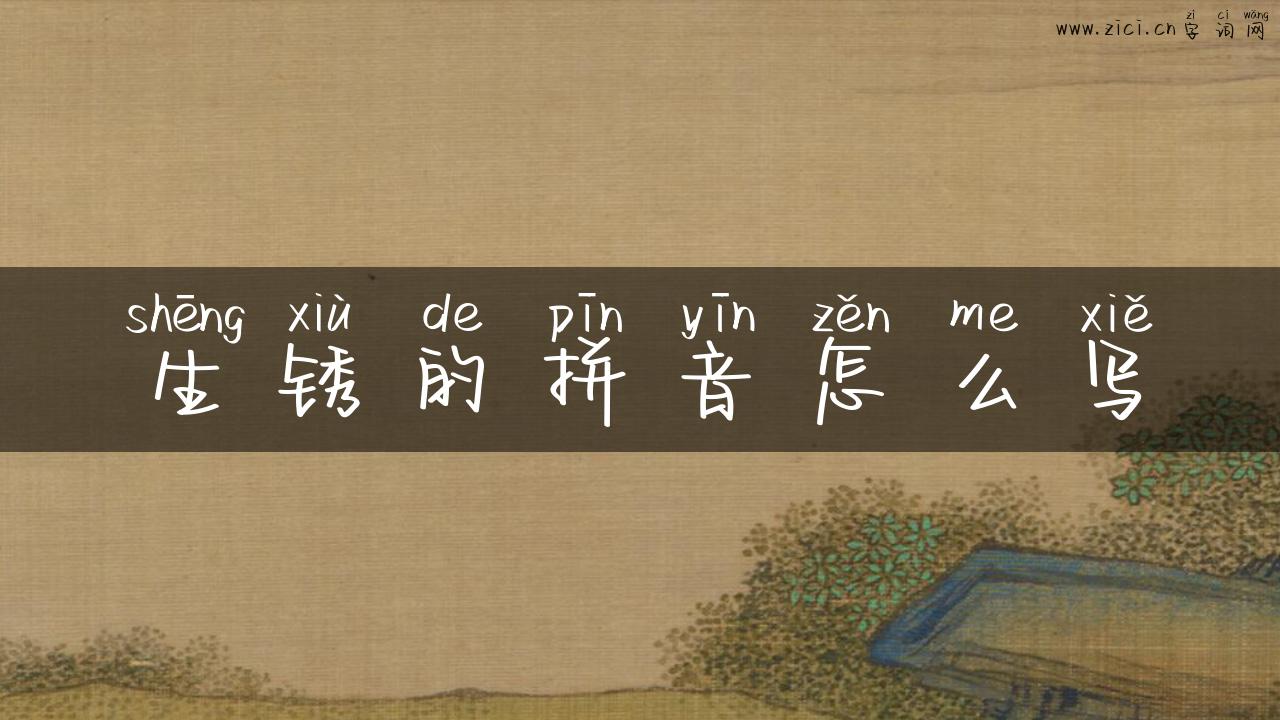 zì cí wǎng
www.zici.cn 字 词 网
shēng xiù de pīn yīn zěn me xiě
生 锈 的 拼 音 怎 么 写